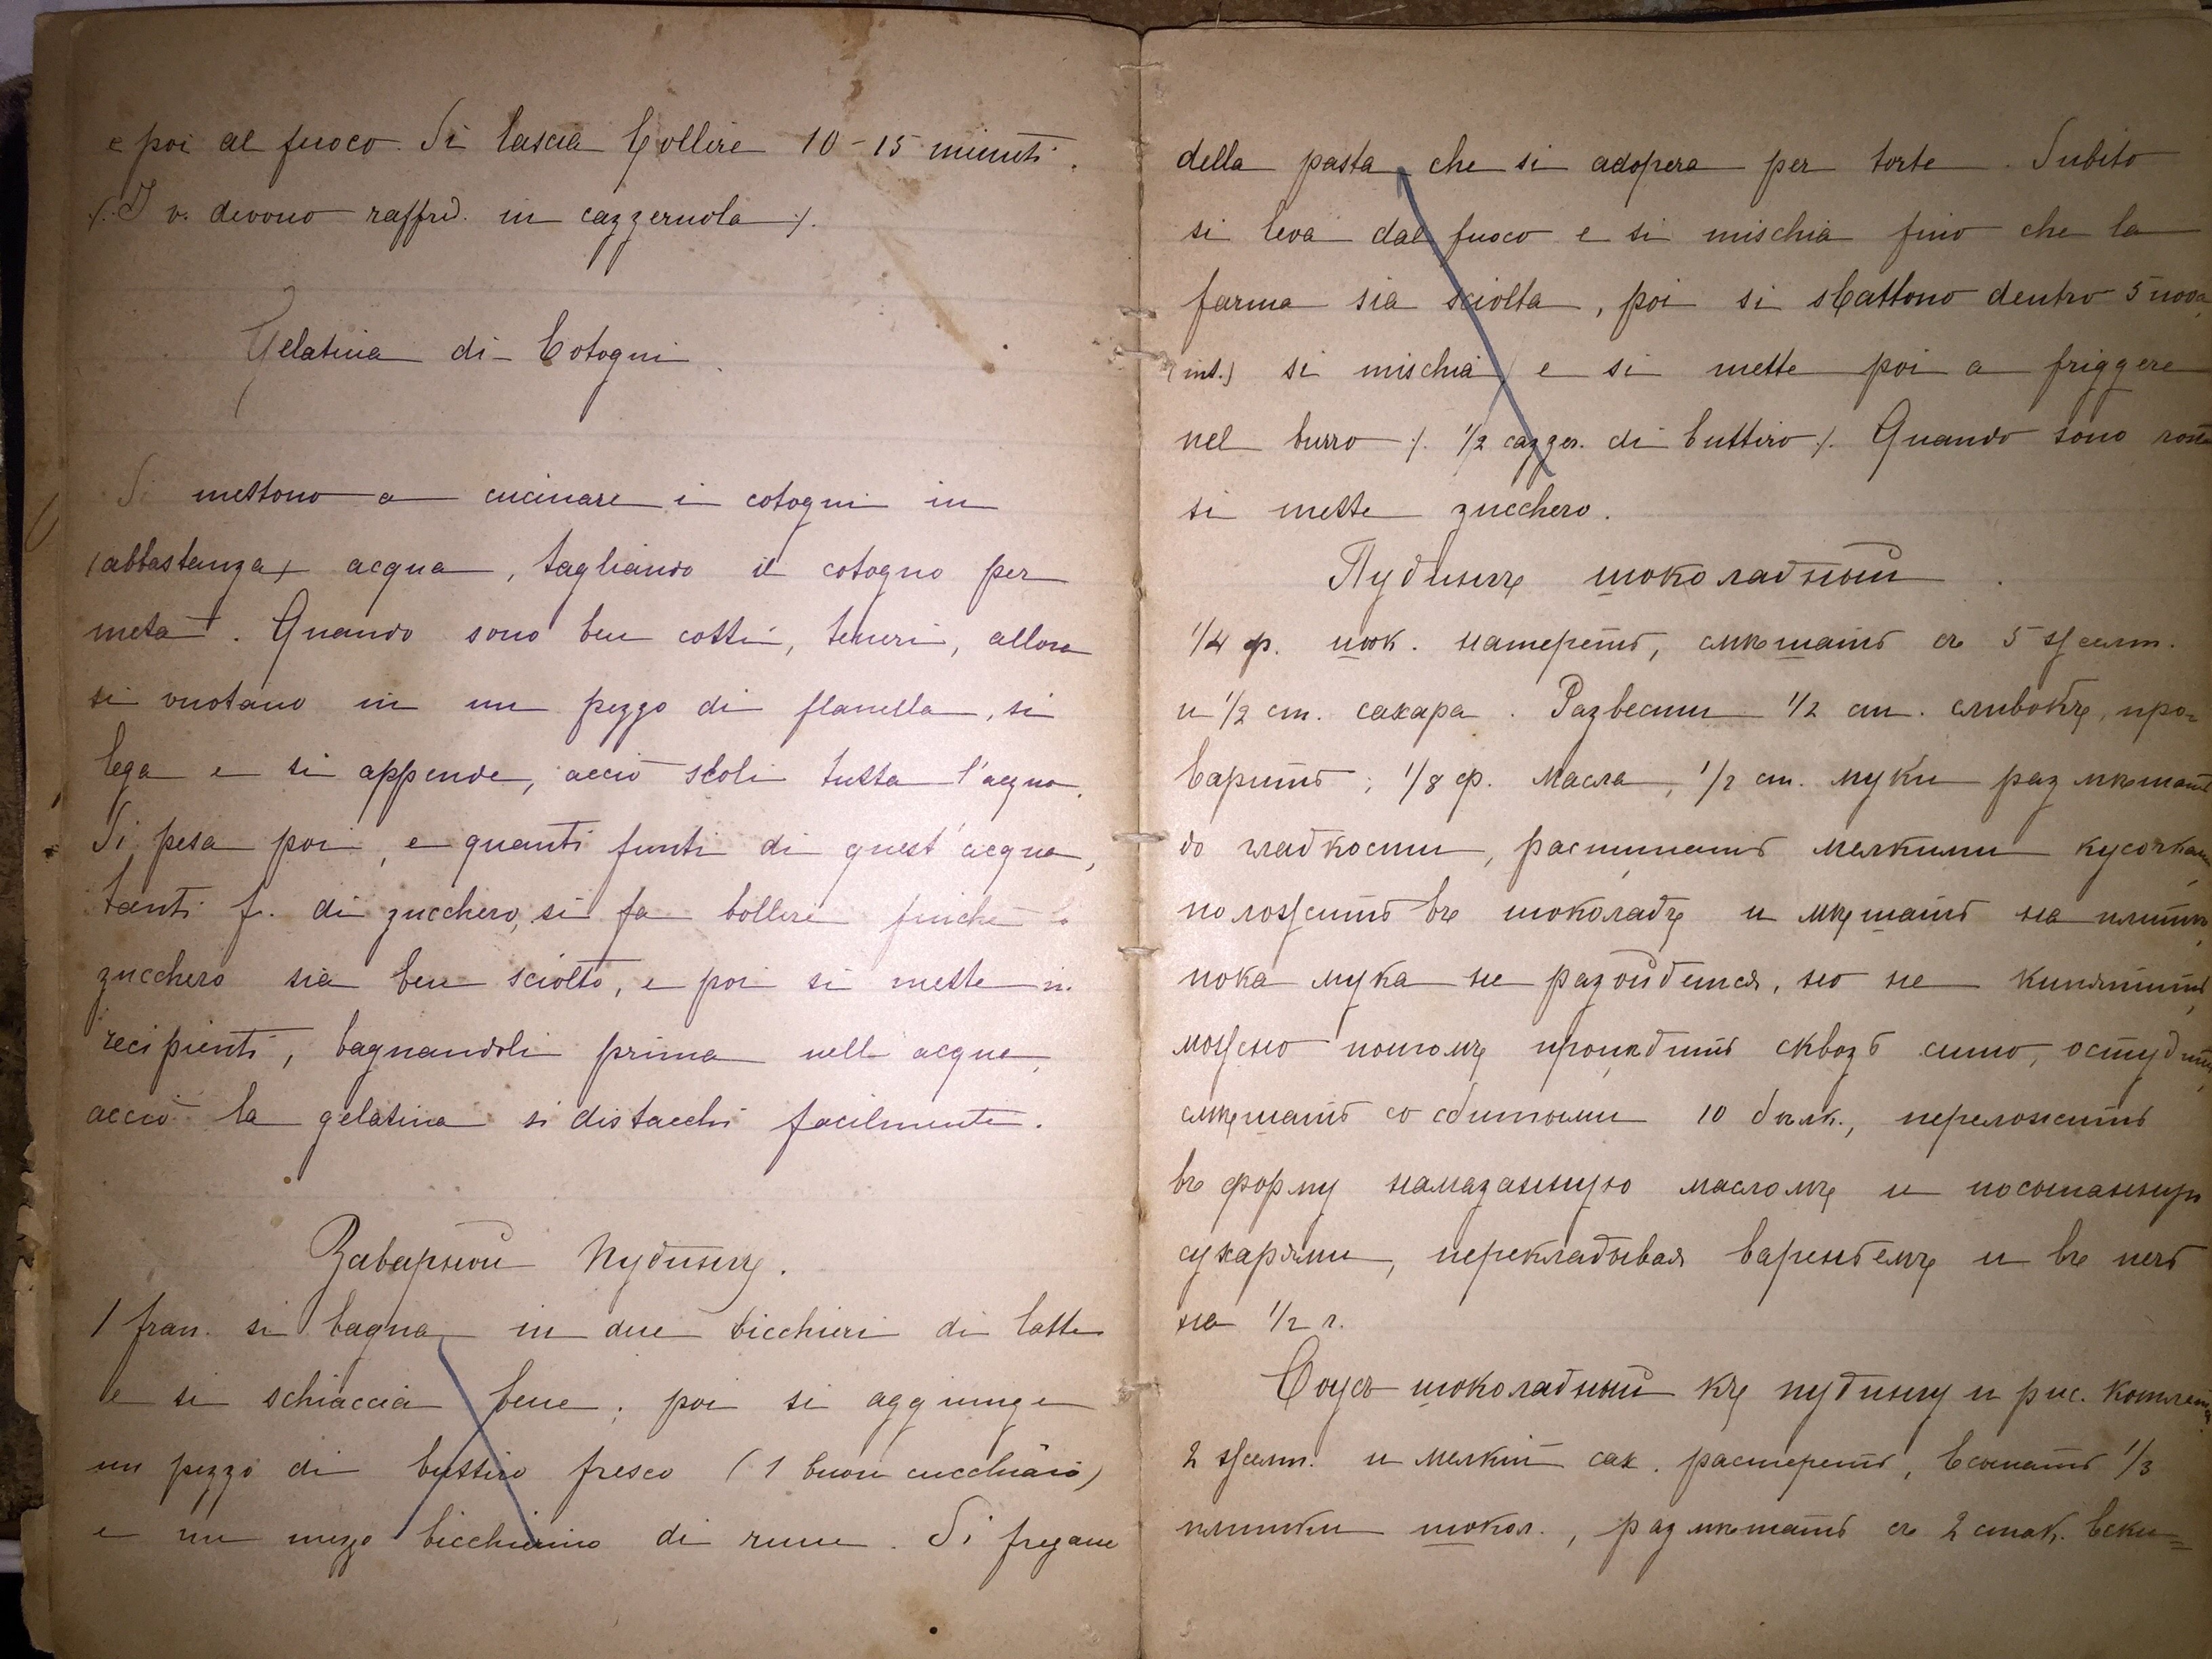 e poi al fuoco. Si lascia bollire 10-15 minuti.
(:I v. devono raffred. in cazzeruola:).
Gelatina di Cotogni
Si mettono a cucinare i cotogni in
(abbastanza) acqua, tagliando il cotogno per
metà. Quando sono ben cotti, teneri, allora
si vuotano in un pezzo di flanella, si
lega e si appende, acciò scoli tutta l'acqua.
Si pesa poi, e quanti funti di quest'acqua,
tanti f. di zucchero, si fa bollire finchè lo
zucchero sia ben sciolto, e poi si mette in
recipienti, bagnandoli prima nell acqua,
acciò la gelatina si distacchi facilmente.
Заварной Пудингъ.
1 fran. si bagna in due bicchieri di latte
e si schiaccia bene; poi si aggiunge
un pezzo di buttiro fresco (1 buon cucchiaio)
e un mezzo bicchierino di rum. Si fregano
della pasta che si adopera per torte. Subito
si leva dal fuoco e si mischia fino che la
farina sia sciolta, poi si sbattono dentro 5 uova
(int.) si mischia e si mette poi a friggere
nel burro /. 1/2 cazzer. di buttiro /. Quando sono
si mette zucchero.
Пудингъ шоколадный
1/4 ф. шок. натереть, смѣшать съ 5 желт.
и 1/2 ст. сахара. Развести 1/2 ст. сливокъ, про=
варить; 1/8 ф. масла, 1/2 ст. муки размѣшать
до гладкости, расщипать мелкими кусочками,
положить въ шоколадъ и мѣшать на плитѣ,
пока мука не разойдется, но не кипятить,
можно потомъ процѣдить сквозь сито, остудить,
смѣшать со сбитыми 10 бѣлк., переложить
въ форму намазанную масломъ и посыпанную
сухарями, перекладывая вареньемъ и въ печь
на 1/2 ч.
Соусъ шоколадный къ пудингу и рис. котлетамъ
2 желт. и мелкій сах. растереть, всыпать 1/3
плитки шокол., размѣшать съ 2 стак. вски=